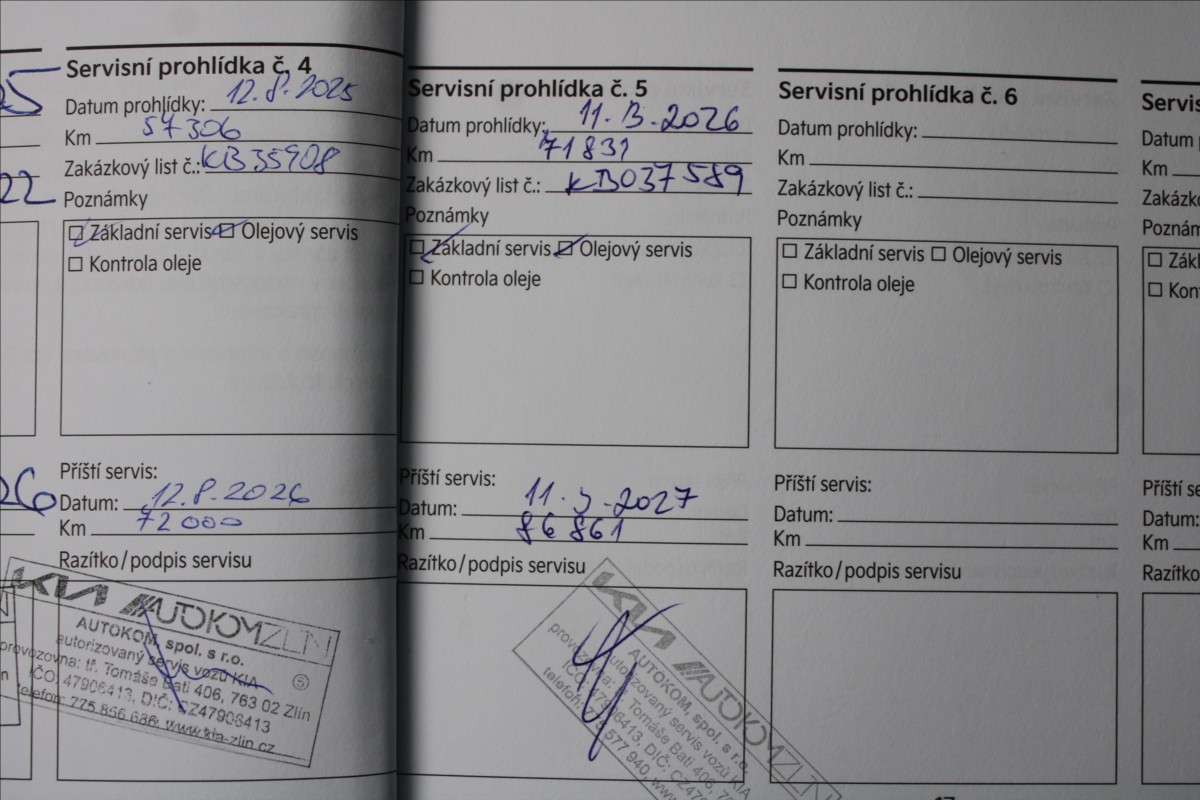 25
22
26
Servisní prohlídka č. 4
Datum prohlídky: 12.8.2025
Km 57306
Zakázkový list č.: KB35908
Poznámky
Základní servis Olejový servis
Kontrola oleje
Příští servis:
Datum: 12.8.2026
Km 72000
Razítko/podpis servisu
KIA AUTOKOMZLIN
AUTOKOM, spol. s r.o.
autorizovaný servis vozů KIA
provozovna: tř. Tomáše Bati 406, 763 02 Zlín
IČO: 47906413, DIČ: CZ47906413
telefon: 775 856 686, www.kia-zlin.cz
Servisní prohlídka č. 5
Datum prohlídky: 11.3.2026
Km 71831
Zakázkový list č.: KB037589
Poznámky
Základní servis Olejový servis
Kontrola oleje
Příští servis:
Datum: 11.3.2027
Km 86861
Razítko/podpis servisu
KIA AUTOKOMZLIN
AUTOKOM, spol. s r.o.
autorizovaný servis vozů KIA
tř. Tomáše Bati 406,
DIČ:
577 940,
Servisní prohlídka č. 6
Datum prohlídky:
Km
Zakázkový list č.:
Poznámky
Základní servis Olejový servis
Kontrola oleje
Příští servis:
Datum:
Km
Razítko/podpis servisu
Servis
Datum
Km
Zakázko
Poznám
Zákl
Kont
Příští se
Datum:
Km
Razítko